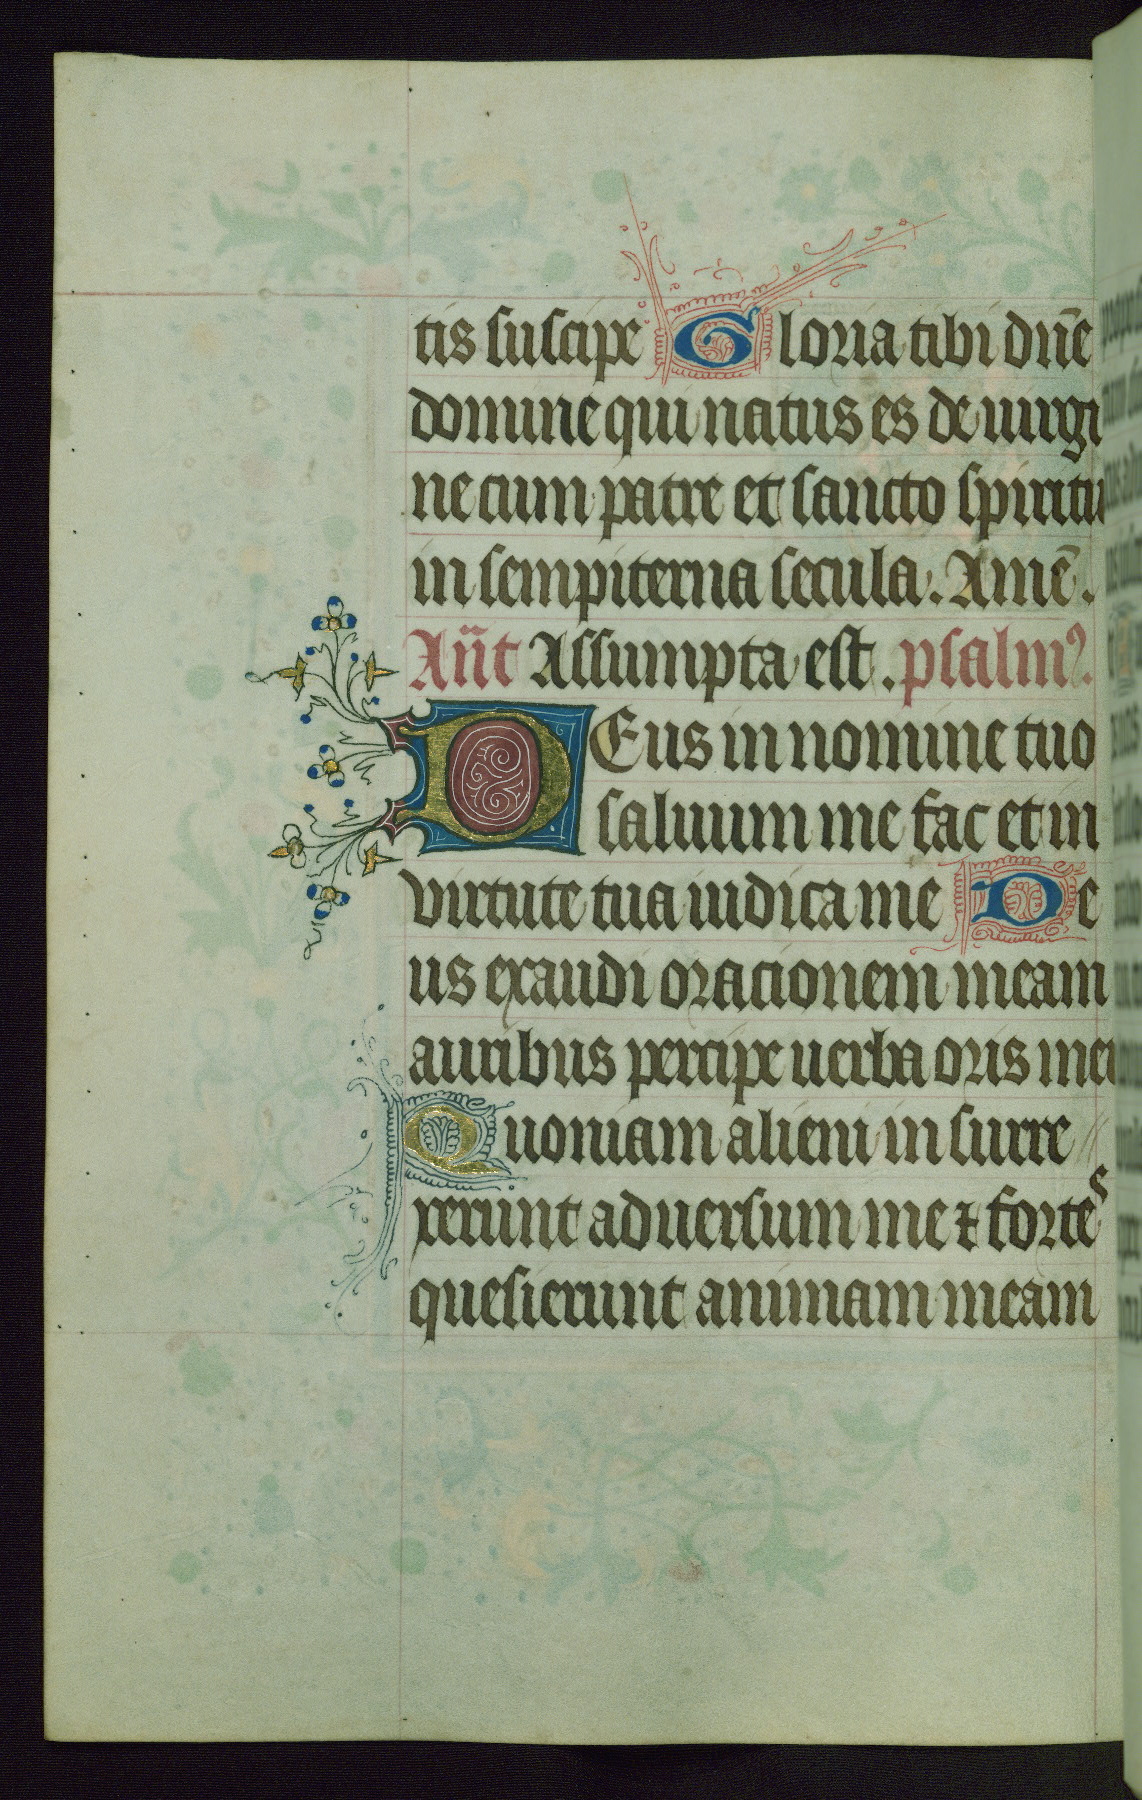 tis suscipe Gloria tibi dn̄e
domine qui natus es de uirgi
ne cum patre et sancto spiritu
in sempiterna secula. Amē.
An̄t Assumpta est. psalmꝰ.
DEus in nomine tuo
saluum me fac et in
virtute tua iudica me De
us exaudi orationem meam
auribus percipe uerba oris mei
Quoniam alieni in surre
xerunt aduersum me ⁊ fortes
quesierunt animam meam